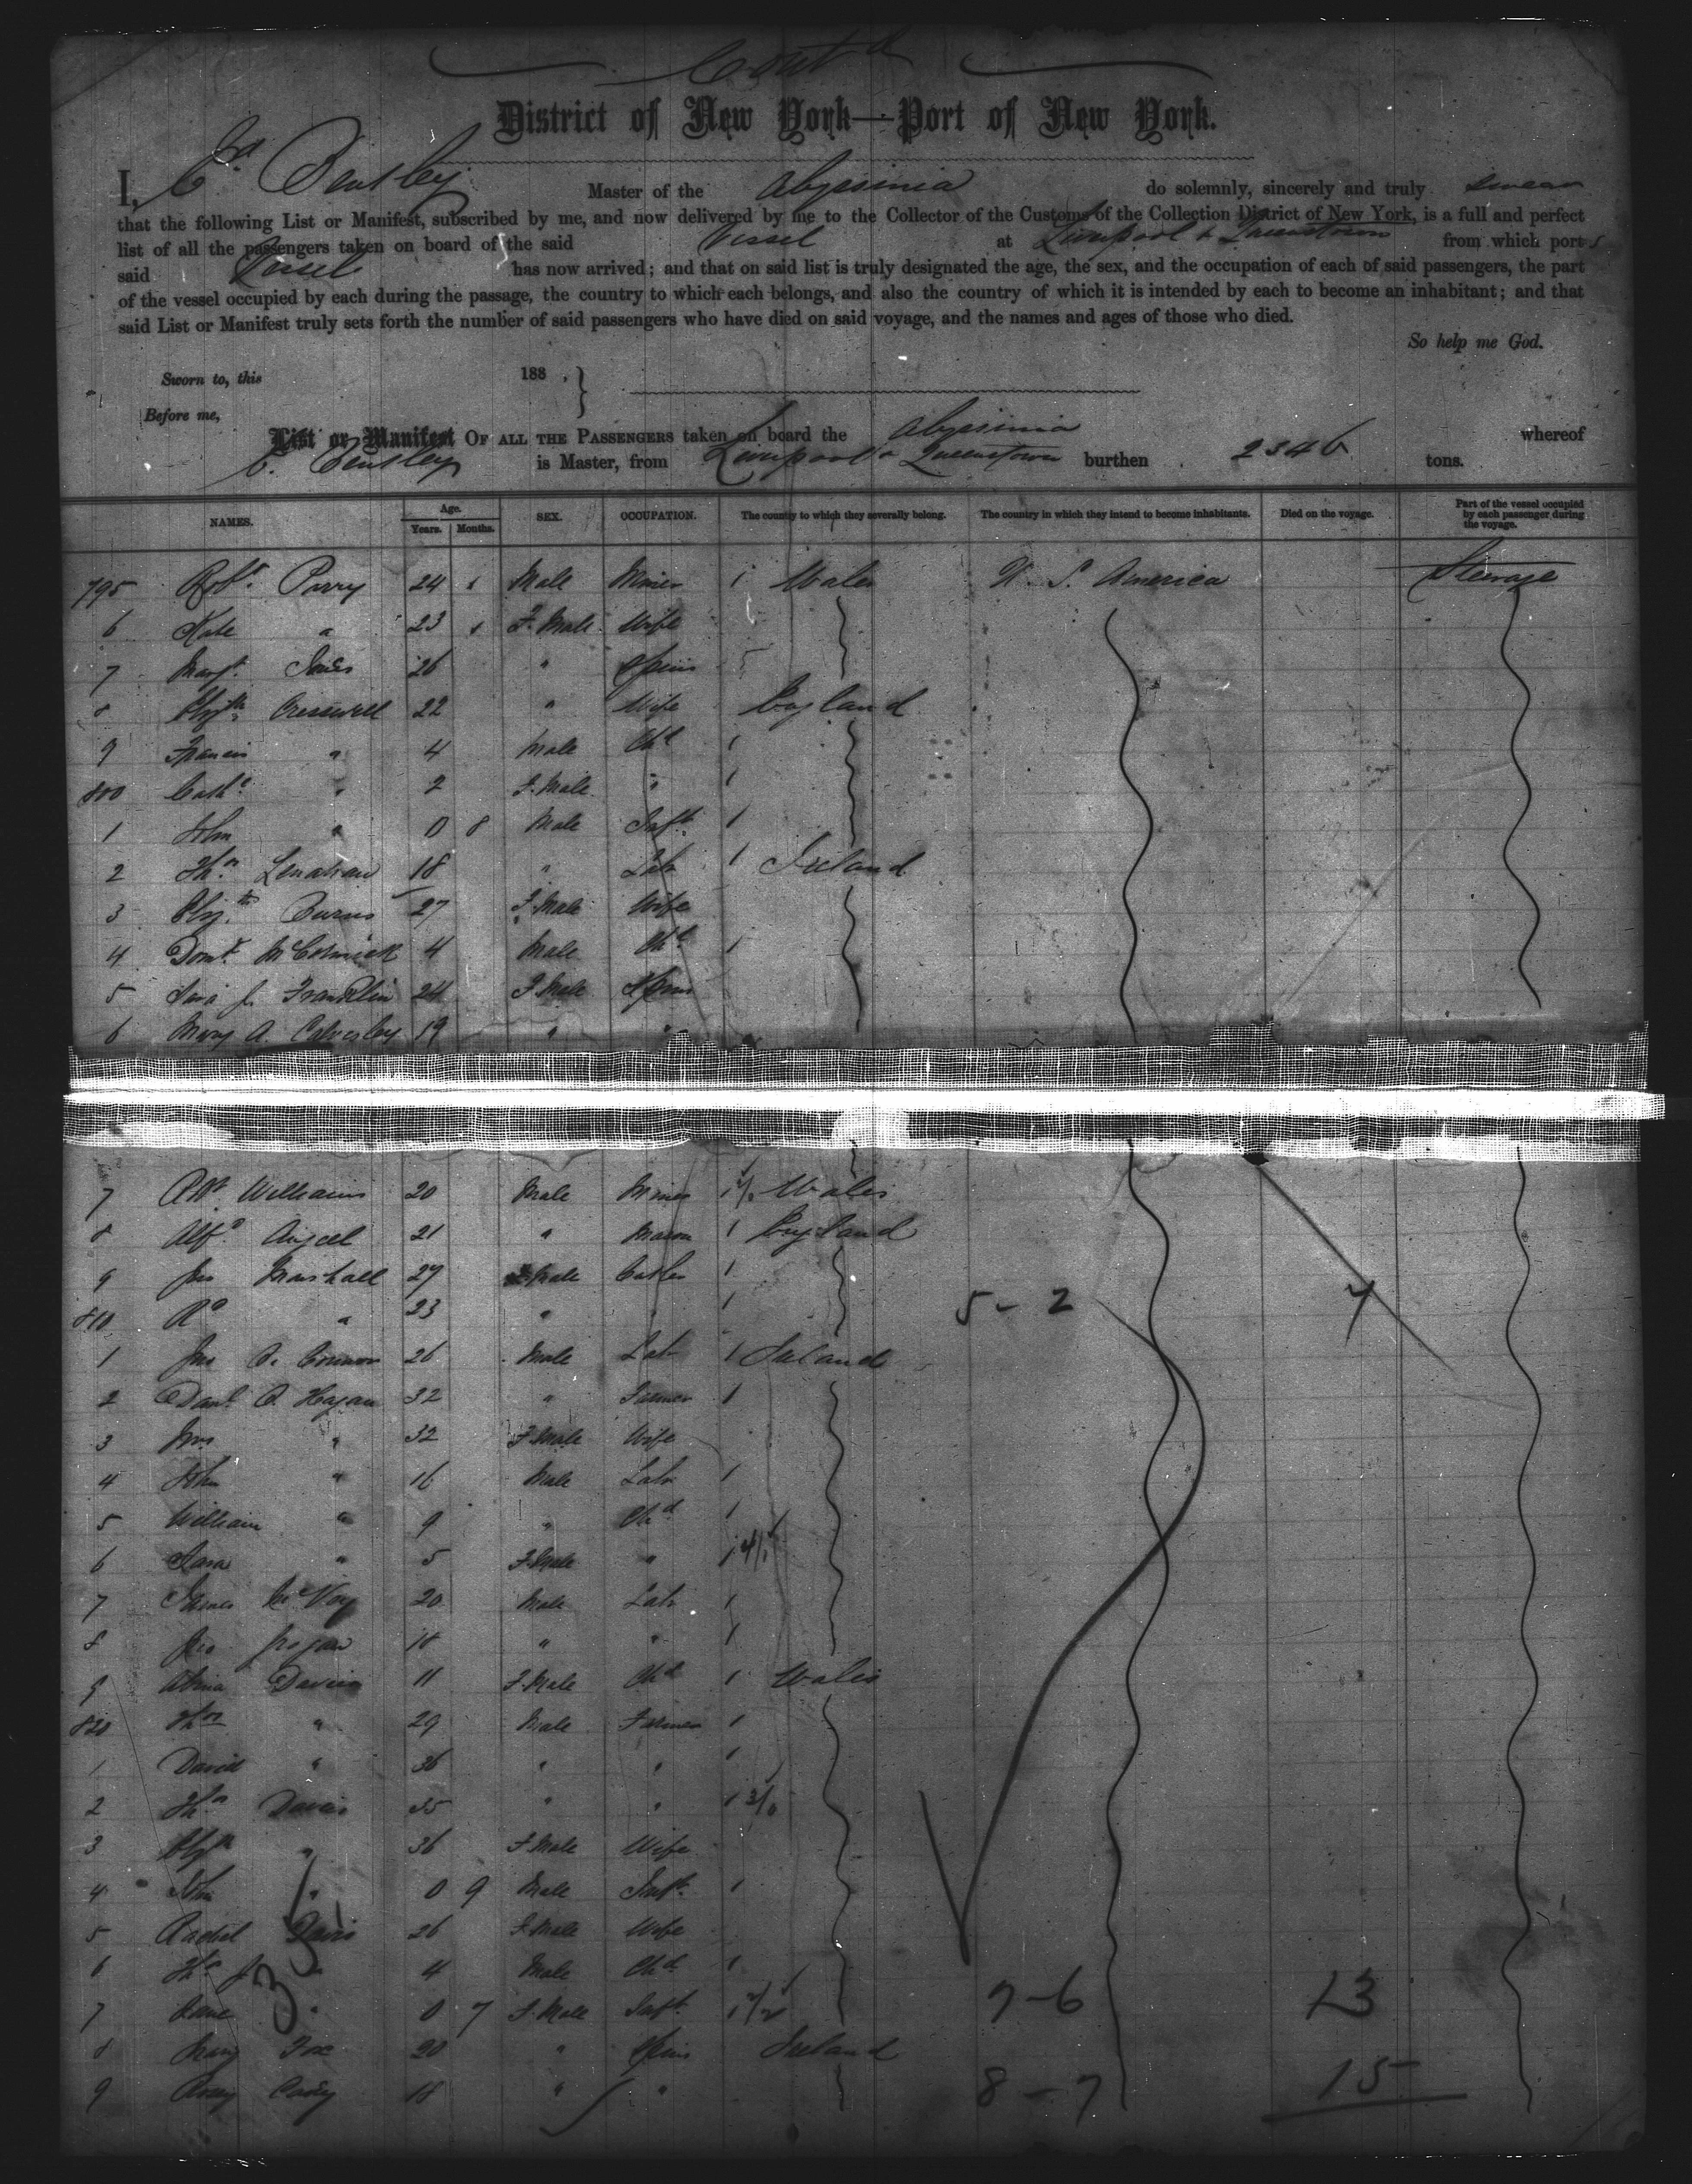 Cont'd
District of New York—Port of New York.
I, Bentley Master of the Abyssinia do solemnly, sincerely and truly swear
that the following List or Manifest, subscribed by me, and now delivered by me to the Collector of the Customs of the Collection District of New York, is a full and perfect
list of all the passengers taken on board of the said Vessel at Liverpool & Queenstown from which ports
said Vessel has now arrived; and that on said list is truly designated the age, the sex, and the occupation of each of said passengers, the part
of the vessel occupied by each during the passage, the country to which each belongs, and also the country of which it is intended by each to become an inhabitant; and that
said List or Manifest truly sets forth the number of said passengers who have died on said voyage, and the names and ages of those who died.
So help me God.
Sworn to, this 188 .
Before me,
List or Manifest OF ALL THE PASSENGERS taken on board the Abyssinia whereof
C. Bentley is Master, from Liverpool & Queenstown burthen 2346 tons.
NAMES. Age. Years. Months. SEX. OCCUPATION. The country to which they severally belong. The country in which they intend to become inhabitants. Died on the voyage. Part of the vessel occupied by each passenger during the voyage.
795 Robt. Parry 24 1 Male Miner 1 Wales U. S. America Steerage
6 Kate " 23 1 F. Male Wife
7 Margt. Jones 26 " Spins
8 Elizth. Cresswell 22 " Wife England
9 Francis " 4 Male Chd 1
800 Cathe " 2 F. Male " 1
1 John " 0 8 Male Inft. 1
2 Thos. Lenahan 18 " Lab 1 Ireland
3 Elizth. Burns 27 F. Male Wife
4 McCormick 4 Male Chd 1
5 J. Franklin 24 F. Male Spins
6 Mary A. Calversley 19 " "
7 Williams 20 Male Miner 1 Wales
8 Alfd. Angell 21 " Mason 1 England
9 Jno Marshall 27 Male 1
810 " 23 " 1
1 Jno O. Connor 26 Male Lab 1 Ireland
2 Danl. O. Hagan 32 " Farmer 1
3 Mrs " 32 F. Male Wife
4 John " 16 Male Labr 1
5 William " 9 " Chd 1
6 Sara " 5 F. Male " 1 4/1
7 James McVoy 20 Male Labr 1
8 Jno Grogan 18 " " 1
9 Davies 11 F. Male Chd 1 Wales
820 Thos " 29 Male Farmer 1
1 David " 36 " " 1
2 Thos. Davis 35 " " 1 3/0
3 Elizth " 36 F. Male Wife
4 John " 0 9 Male Inft. 1
5 Rachel Davis 26 F. Male Wife
6 Thos J. " 4 Male Chd. 1
7 " 0 7 F. Male Inft. 1
8 Mary Fox 20 " Spins Ireland
9 18 " "
5 - 2
7
7 - 6 13
8 - 7 15